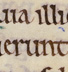 uia illic
erunt